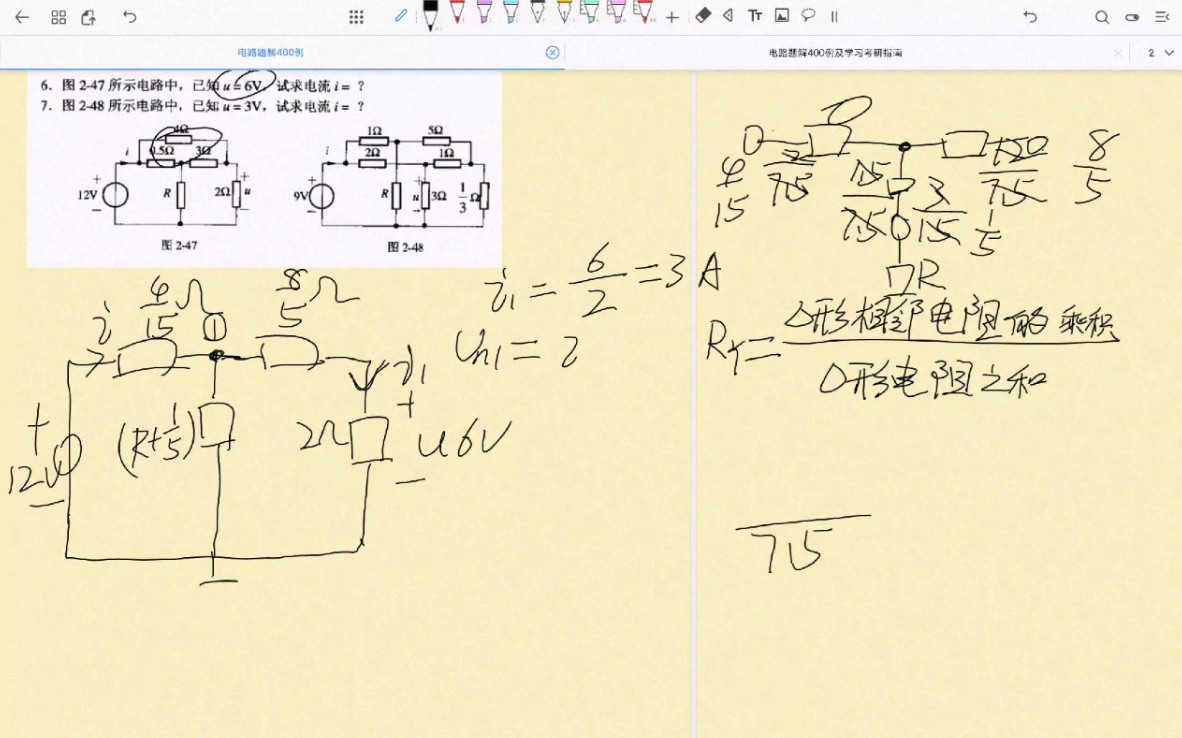 电路题解400例
电路题解400例及学习考研指南
2
6. 图 2-47 所示电路中,已知 u = 6V,试求电流 i = ?
7. 图 2-48 所示电路中,已知 u = 3V,试求电流 i = ?
4Ω
i 0.5Ω 3Ω
12V R 2Ω u
图 2-47
1Ω 5Ω
i 2Ω 1Ω
9V R u 3Ω 1/3 Ω
图 2-48
4/15 Ω 8/5 Ω
i ①
i₁
12V (R+1/5) 2Ω u 6V
i₁ = 6/2 = 3 A
Un1 = 2
4/15 2/7.5 1.5/7.5 3/15 1/5 8/5
R
RY = Δ形相邻电阻的乘积
Δ形电阻之和
7.5